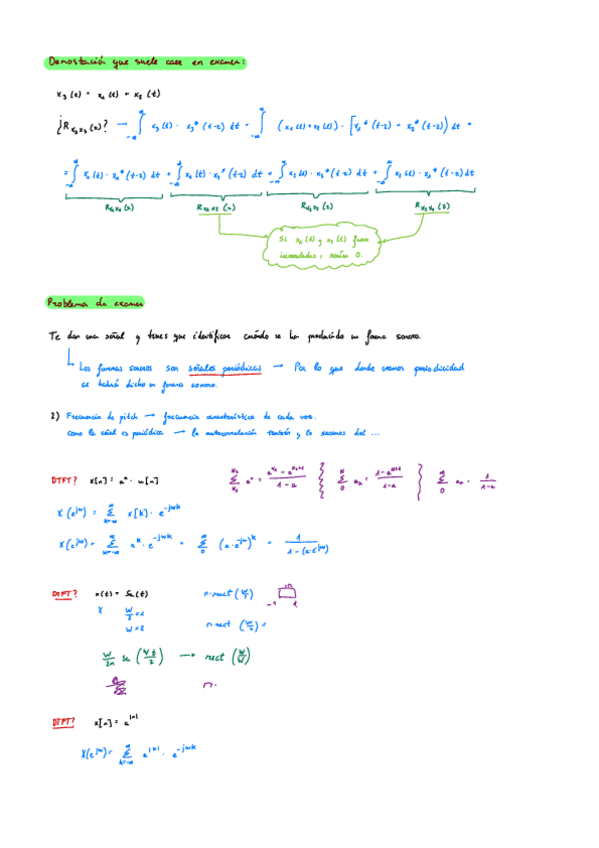 Demostración que suele caer en examen:
x₃(t) = x₁(t) + x₂(t)
¿R_{x₃x₃}(z)? → ∫_{-∞}^{∞} x₃(t) · x₃*(t-z) dt = ∫_{-∞}^{∞} (x₁(t)+x₂(t)) · [x₁*(t-z) + x₂*(t-z)] dt =
= ∫_{-∞}^{∞} x₁(t) · x₁*(t-z) dt + ∫_{-∞}^{∞} x₁(t) · x₂*(t-z) dt + ∫_{-∞}^{∞} x₂(t) · x₂*(t-z) dt + ∫_{-∞}^{∞} x₂(t) · x₁*(t-z) dt
R_{x₁x₁}(z) R_{x₁x₂}(z) R_{x₂x₂}(z) R_{x₂x₁}(z)
Si x₁(t) y x₂(t) fueran
incorreladas, serían 0.
Problema de examen
Te dan una señal y tienes que identificar cuándo se ha producido un forma sonoro.
Las formas sonoros son señales periódicas → Por lo que donde veamos periodicidad
se habrá dicho un forma sonoro.
2) Frecuencia de pitch → frecuencia característica de cada voz.
como la señal es periódica → la autocorrelación también y lo sacamos del ...
DTFT? x[n] = aⁿ · u[n]
X(e^{jω}) = Σ_{k=-∞}^{∞} x[k] · e^{-jωk}
X(e^{jω}) = Σ_{k=-∞}^{∞} a^k · e^{-jωk} = Σ_0^∞ (a·e^{-jω})^k = 1/(1-(a·e^{-jω}))
DTFT? x(t) = Sa(t)
W/2 = 1
W = 2
W/2π sa(Wt/2) → rect(ω/W)
π·
DTFT? x[n] = a^{|n|}
X(e^{jω}) = Σ_{k=-∞}^{∞} a^{|k|} · e^{-jωk}